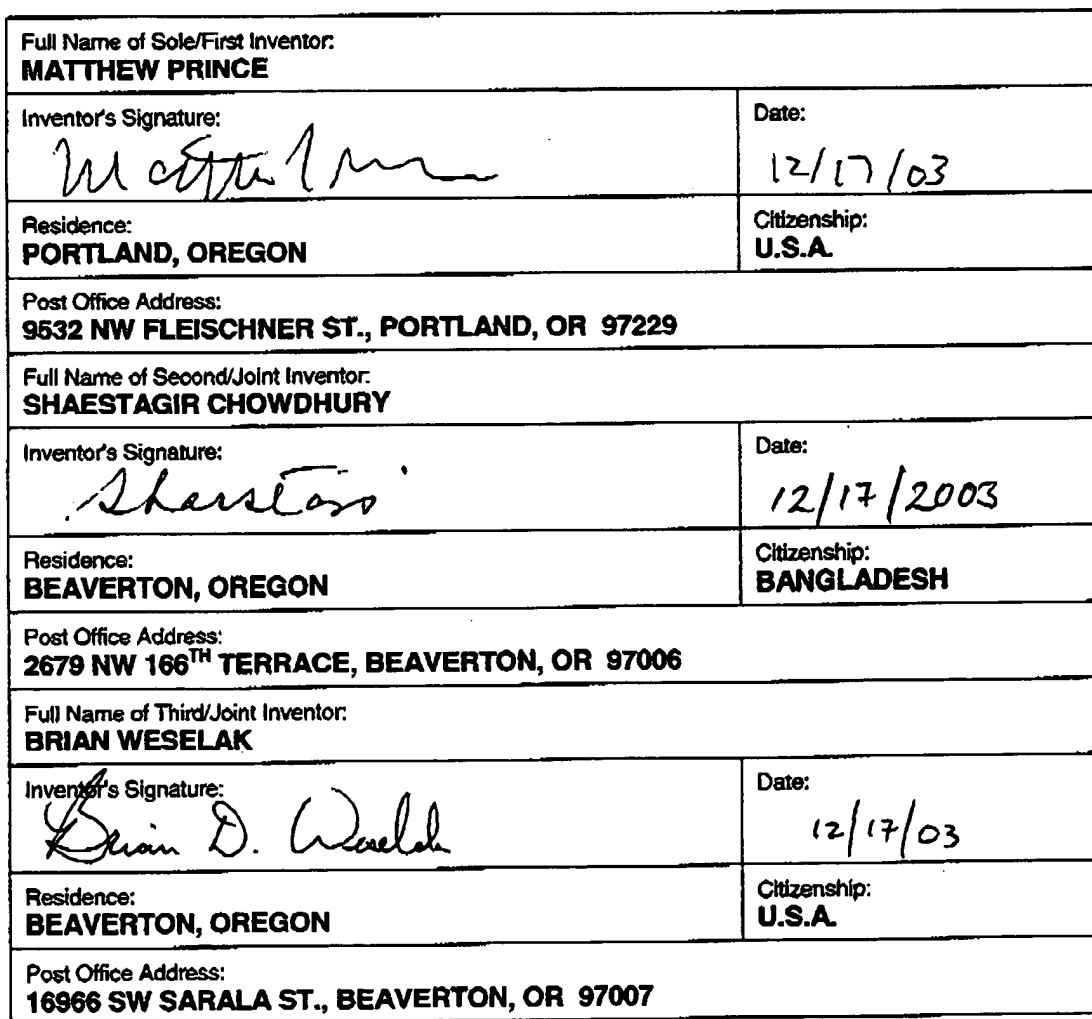 Full Name of Sole/First Inventor:
MATTHEW PRINCE
Inventor's Signature:
Date:
12/17/03
Residence:
PORTLAND, OREGON
Citizenship:
U.S.A.
Post Office Address:
9532 NW FLEISCHNER ST., PORTLAND, OR 97229
Full Name of Second/Joint Inventor:
SHAESTAGIR CHOWDHURY
Inventor's Signature:
Date:
12/17/2003
Residence:
BEAVERTON, OREGON
Citizenship:
BANGLADESH
Post Office Address:
2679 NW 166TH TERRACE, BEAVERTON, OR 97006
Full Name of Third/Joint Inventor:
BRIAN WESELAK
Inventor's Signature:
Brian D. Weselak
Date:
12/17/03
Residence:
BEAVERTON, OREGON
Citizenship:
U.S.A.
Post Office Address:
16966 SW SARALA ST., BEAVERTON, OR 97007